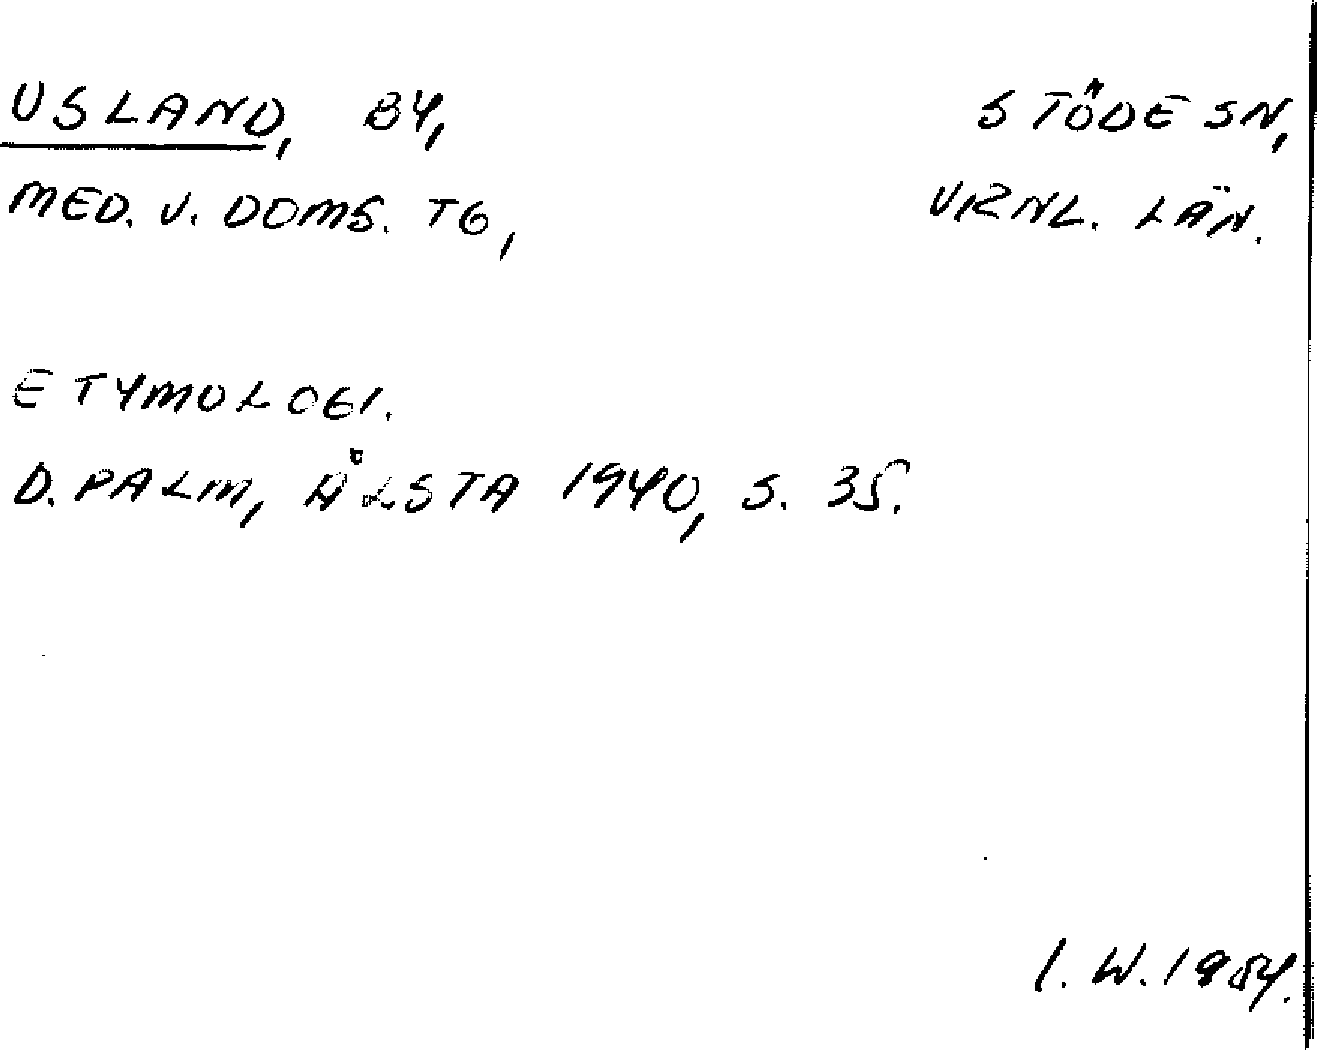 USLAND, BY, STÖDE SN,
MED. V. DOMS. TG, VRNL. LÄN.
ETYMOLOGI.
D. PALM, ÅLSTA 1940, S. 35.
I. W. 1984.